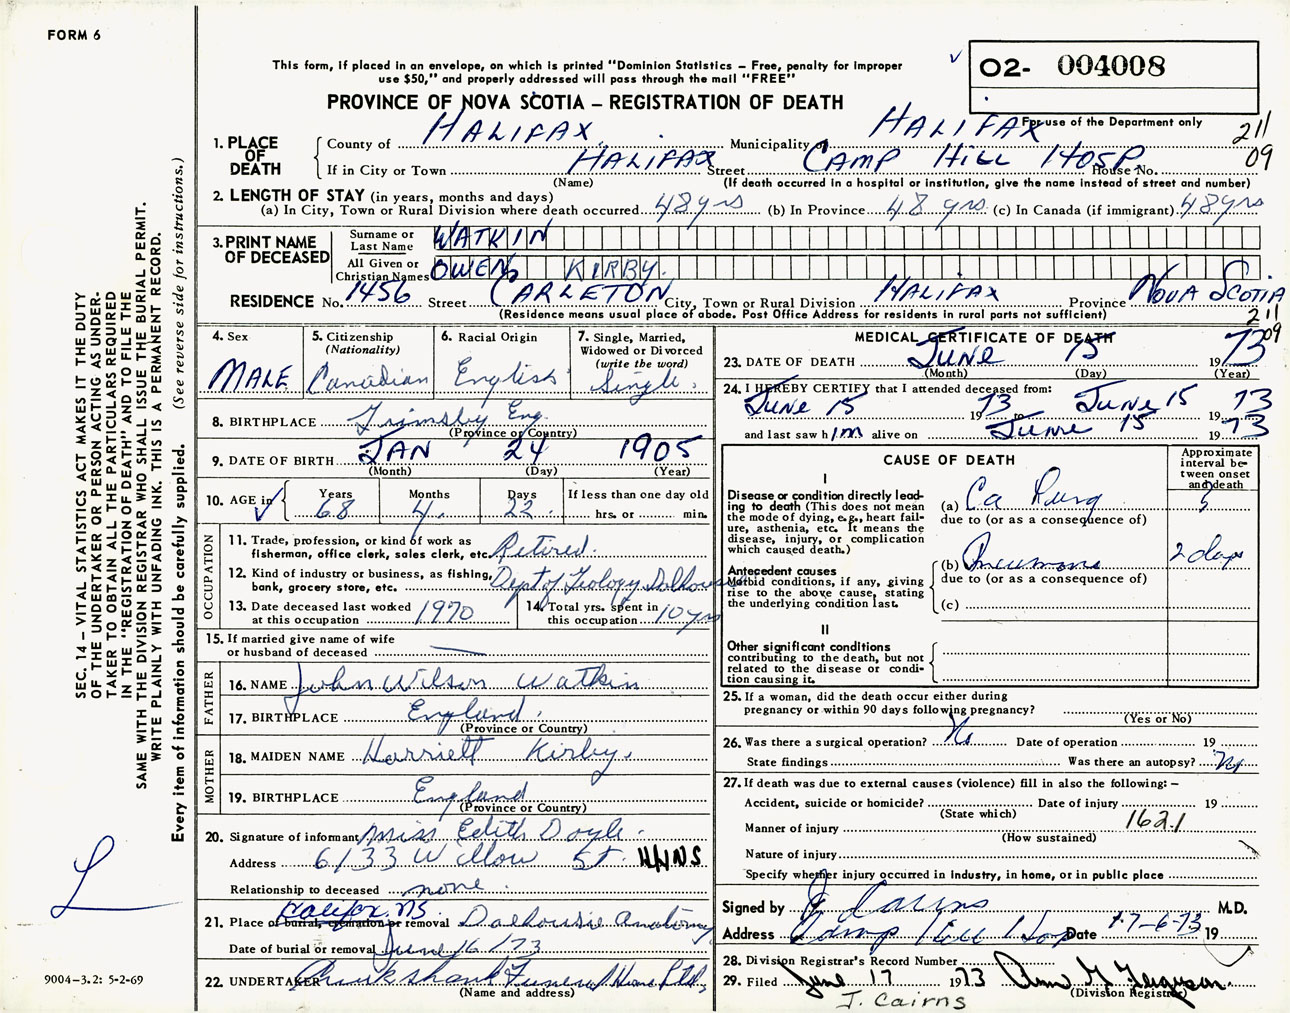 FORM 6
This form, if placed in an envelope, on which is printed "Dominion Statistics – Free, penalty for improper
use $50," and properly addressed will pass through the mail "FREE"
PROVINCE OF NOVA SCOTIA – REGISTRATION OF DEATH
O2- 004008
For use of the Department only
211
09
1. PLACE OF DEATH
County of HALIFAX Municipality of HALIFAX
If in City or Town HALIFAX Street CAMP HILL HOSP House No.
(Name) (If death occurred in a hospital or institution, give the name instead of street and number)
2. LENGTH OF STAY (in years, months and days)
(a) In City, Town or Rural Division where death occurred 48 yrs (b) In Province 48 yrs (c) In Canada (if immigrant) 48 yrs
3. PRINT NAME OF DECEASED
Surname or Last Name WATKIN
All Given or Christian Names OWEN KIRBY
RESIDENCE No. 1456 Street CARLETON City, Town or Rural Division HALIFAX Province NOVA SCOTIA
(Residence means usual place of abode. Post Office Address for residents in rural parts not sufficient)
211
09
4. Sex
MALE
5. Citizenship
(Nationality)
Canadian
6. Racial Origin
English
7. Single, Married,
Widowed or Divorced
(write the word)
Single
8. BIRTHPLACE Grimsby Eng.
(Province or Country)
9. DATE OF BIRTH JAN 24 1905
(Month) (Day) (Year)
10. AGE in
Years 68
Months 4
Days 22
If less than one day old
hrs. or min.
OCCUPATION
11. Trade, profession, or kind of work as
fisherman, office clerk, sales clerk, etc. Retired
12. Kind of industry or business, as fishing,
bank, grocery store, etc. Dept of Geology Dalhousie
13. Date deceased last worked
at this occupation 1970
14. Total yrs. spent in
this occupation 10 yrs
15. If married give name of wife
or husband of deceased —
FATHER
16. NAME John Wilson Watkin
17. BIRTHPLACE England
(Province or Country)
MOTHER
18. MAIDEN NAME Harriett Kirby
19. BIRTHPLACE England
(Province or Country)
20. Signature of informant Miss Edith Doyle
Address 6133 Willow St. Hfx NS
Relationship to deceased none
21. Place of burial, cremation or removal Halifax, NS. Dalhousie Anatomy
Date of burial or removal June 16/73
22. UNDERTAKER Cruikshank Funeral Home Ltd.
(Name and address)
MEDICAL CERTIFICATE OF DEATH
23. DATE OF DEATH JUNE 15 1973
(Month) (Day) (Year)
24. I HEREBY CERTIFY that I attended deceased from:
JUNE 15 1973 to JUNE 15 1973
and last saw him alive on JUNE 15 1973
CAUSE OF DEATH
Approximate
interval be-
tween onset
and death
I
Disease or condition directly lead-
ing to death (This does not mean
the mode of dying, e.g., heart fail-
ure, asthenia, etc. It means the
disease, injury, or complication
which caused death.)
(a) Ca Lung
due to (or as a consequence of)
Antecedent causes
Morbid conditions, if any, giving
rise to the above cause, stating
the underlying condition last.
(b) Pneumonia 2 days
due to (or as a consequence of)
(c)
II
Other significant conditions
contributing to the death, but not
related to the disease or condi-
tion causing it.
25. If a woman, did the death occur either during
pregnancy or within 90 days following pregnancy?
(Yes or No)
26. Was there a surgical operation? No Date of operation 19
State findings Was there an autopsy? No
27. If death was due to external causes (violence) fill in also the following: –
Accident, suicide or homicide? Date of injury 19
(State which)
Manner of injury 162.1
(How sustained)
Nature of injury
Specify whether injury occurred in industry, in home, or in public place
Signed by J Cairns M.D.
Address Camp Hill Hosp Date 17-6-73 19
28. Division Registrar's Record Number
29. Filed June 17 1973 Ann G Ferguson
(Division Registrar)
J. Cairns
SEC. 14 – VITAL STATISTICS ACT MAKES IT THE DUTY
OF THE UNDERTAKER OR PERSON ACTING AS UNDER-
TAKER TO OBTAIN ALL THE PARTICULARS REQUIRED
IN THE "REGISTRATION OF DEATH" AND TO FILE THE
SAME WITH THE DIVISION REGISTRAR WHO SHALL ISSUE THE BURIAL PERMIT.
WRITE PLAINLY WITH UNFADING INK. THIS IS A PERMANENT RECORD.
Every item of information should be carefully supplied. (See reverse side for instructions.)
L
9004–3.2: 5-2-69